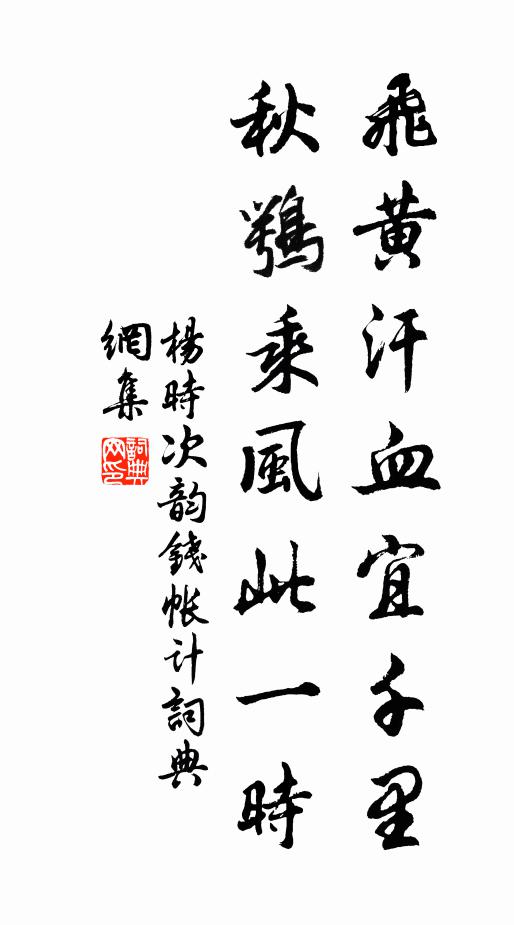 飛黃汗血宜千里
秋鶚乘風此一時
楊時次韵錢帳计詞典
網集
詞典网印